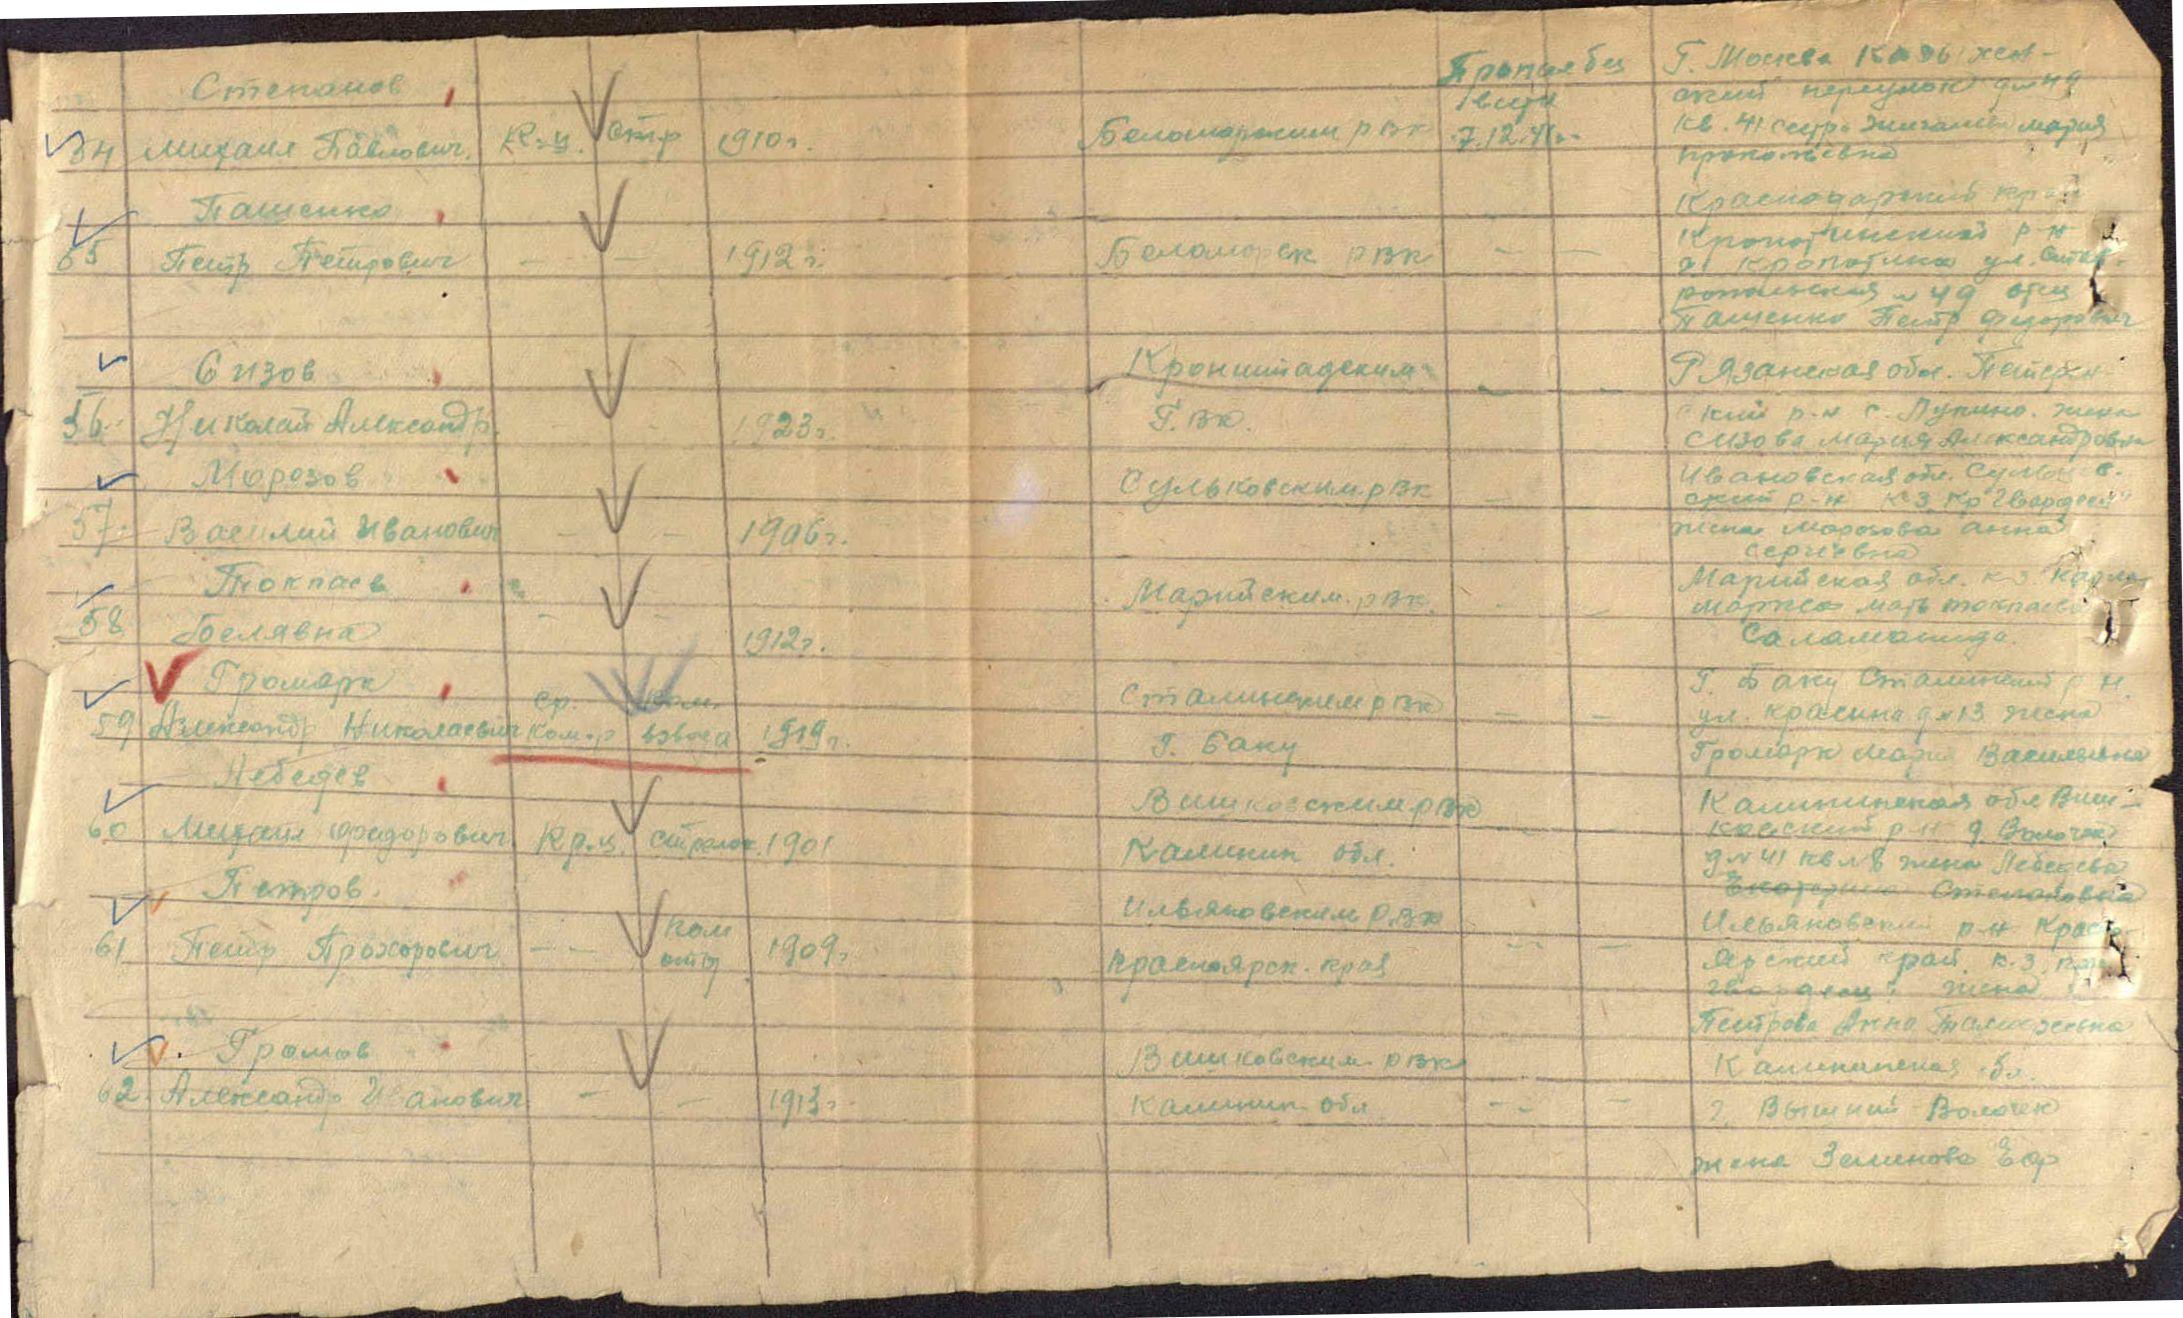 Степанов
54 Михаил Павлович. Кр-ц. Стр 1910г. Беломорским РВК Пропал без
вести
7.12.41г. Г. Москва
ский переулок д № 49
кв. 41 сестра Мария
Прокопьевна
Пащенко
55 Петр Петрович — — 1912г. Беломорск РВК — — Краснодарский край
Кропоткинский р-н
г. Кропоткин ул. Став-
ропольская № 49 отец
Пащенко Петр Федорович
Сизов
56. Николай Александр. - - 1923г. Кронштадским
Г.ВК. - - Рязанская обл.
ский р-н с. Лукино. жена
Сизова Мария Александровна
Морозов
57. Василий Иванович — — 1906г. Сульковским РВК — Ивановская обл.
ский р-н к-з Кр Гвардеец
жена Морозова Анна
Сергеевна
Токпаев
58 - - 1912г. Марийским РВК. - - Марийская обл. к-з. Карла
Маркса мать Токпаева
Громарк
59 Александр Николаевич ср.
ком-р ком.
взвода 1919г. Сталинским РВК
Г. Баку — — Г. Баку Сталинский р-н.
ул. Красина д № 13 жена
Громарк Мария Васильевна
Лебедев
60 Михаил Федорович Кр-ц. стрелок. 1901 Вишковским РВК
Калинин обл. - - Калининская обл Виш-
ковский р-н д. Волочек
д № 41 кв № 8 жена Лебедева
Екатерина Степановна
Петров.
61 Петр Прохорович — — пом
отд 1909г Ильяновским Р.ВК
Красноярск. край — — Ильяновский р-н Красно-
ярский край к-з.
гвардеец жена
Петрова Анна
Громов
62. Александр Иванович — — 1913г. Вишковским РВК
Калинин обл — — Калининская обл.
г. Вышний-Волочек
жена Земенова